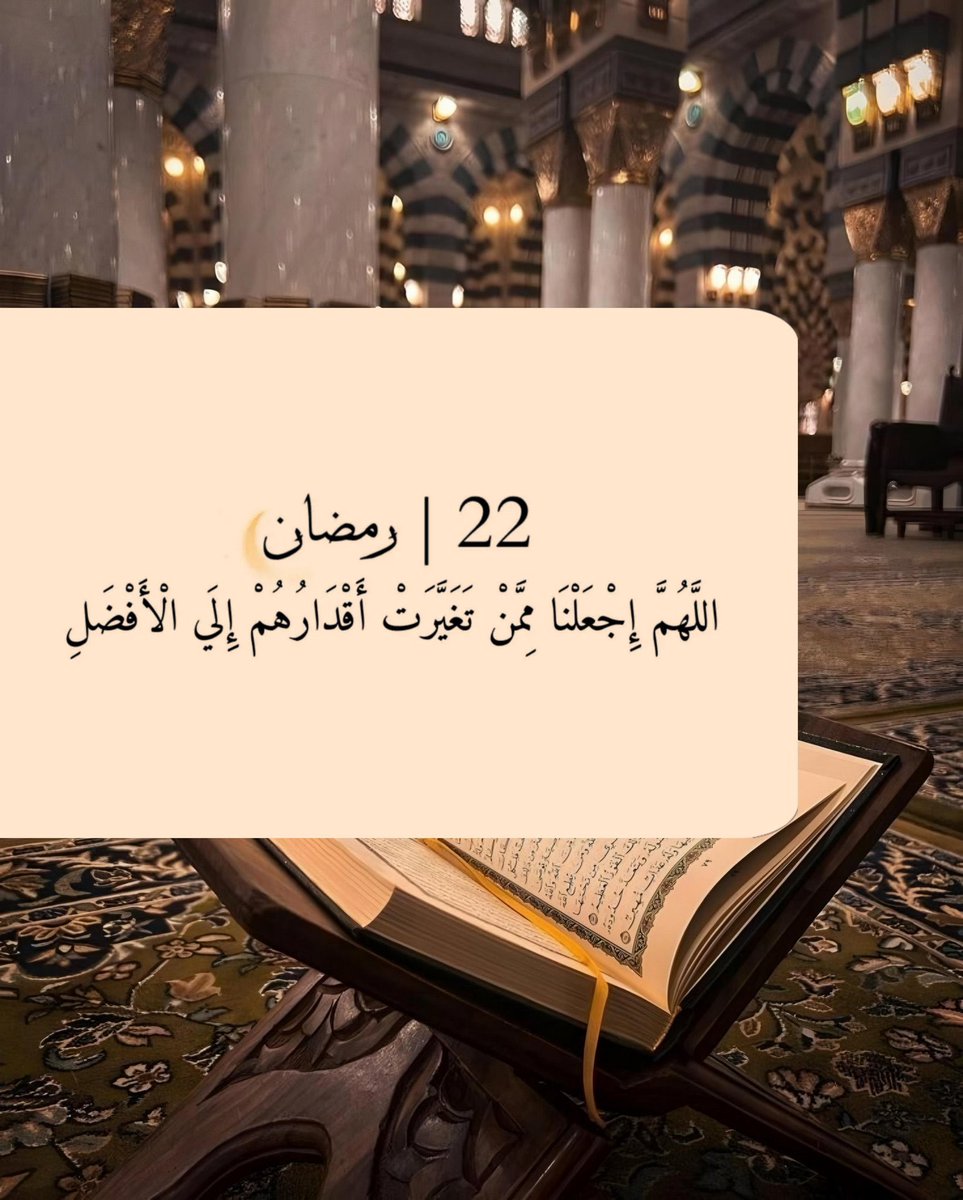 22 | رمضان
اللَّهُمَّ إِجْعَلْنَا مِمَّنْ تَغَيَّرَتْ أَقْدَارُهُمْ إِلَي الْأَفْضَلِ